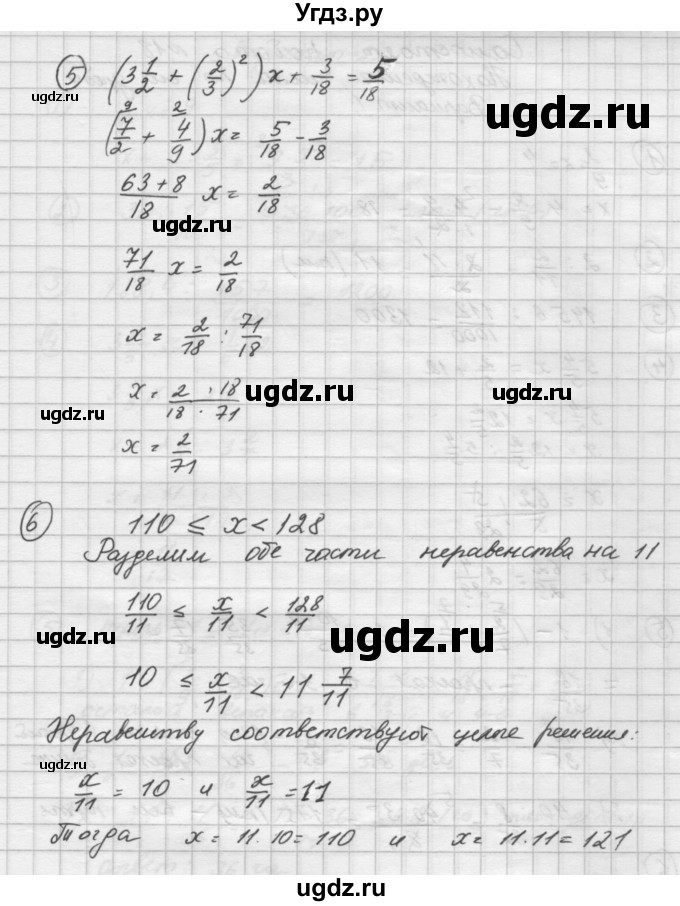 Угдз.ру
5 (3 1/2 + (2/3)²) x + 3/18 = 5/18
ugdz.ru
ugdz.ru
(7/2 + 4/9) x = 5/18 - 3/18
(63 + 8)/18 x = 2/18
ugdz.ru
71/18 x = 2/18
x = 2/18 : 71/18
ugdz.ru
x = (2 · 18)/(18 · 71)
ugdz.ru
ugdz.ru
x = 2/71
6 110 ≤ x < 128
Разделим обе части неравенства на 11
110/11 ≤ x/11 < 128/11
ugdz.ru
ugdz.ru
10 ≤ x/11 < 11 7/11
ugdz.ru
Неравенству соответствуют целые решения:
x/11 = 10 и x/11 = 11
Тогда x = 11·10 = 110 и x = 11·11 = 121
ugdz.ru